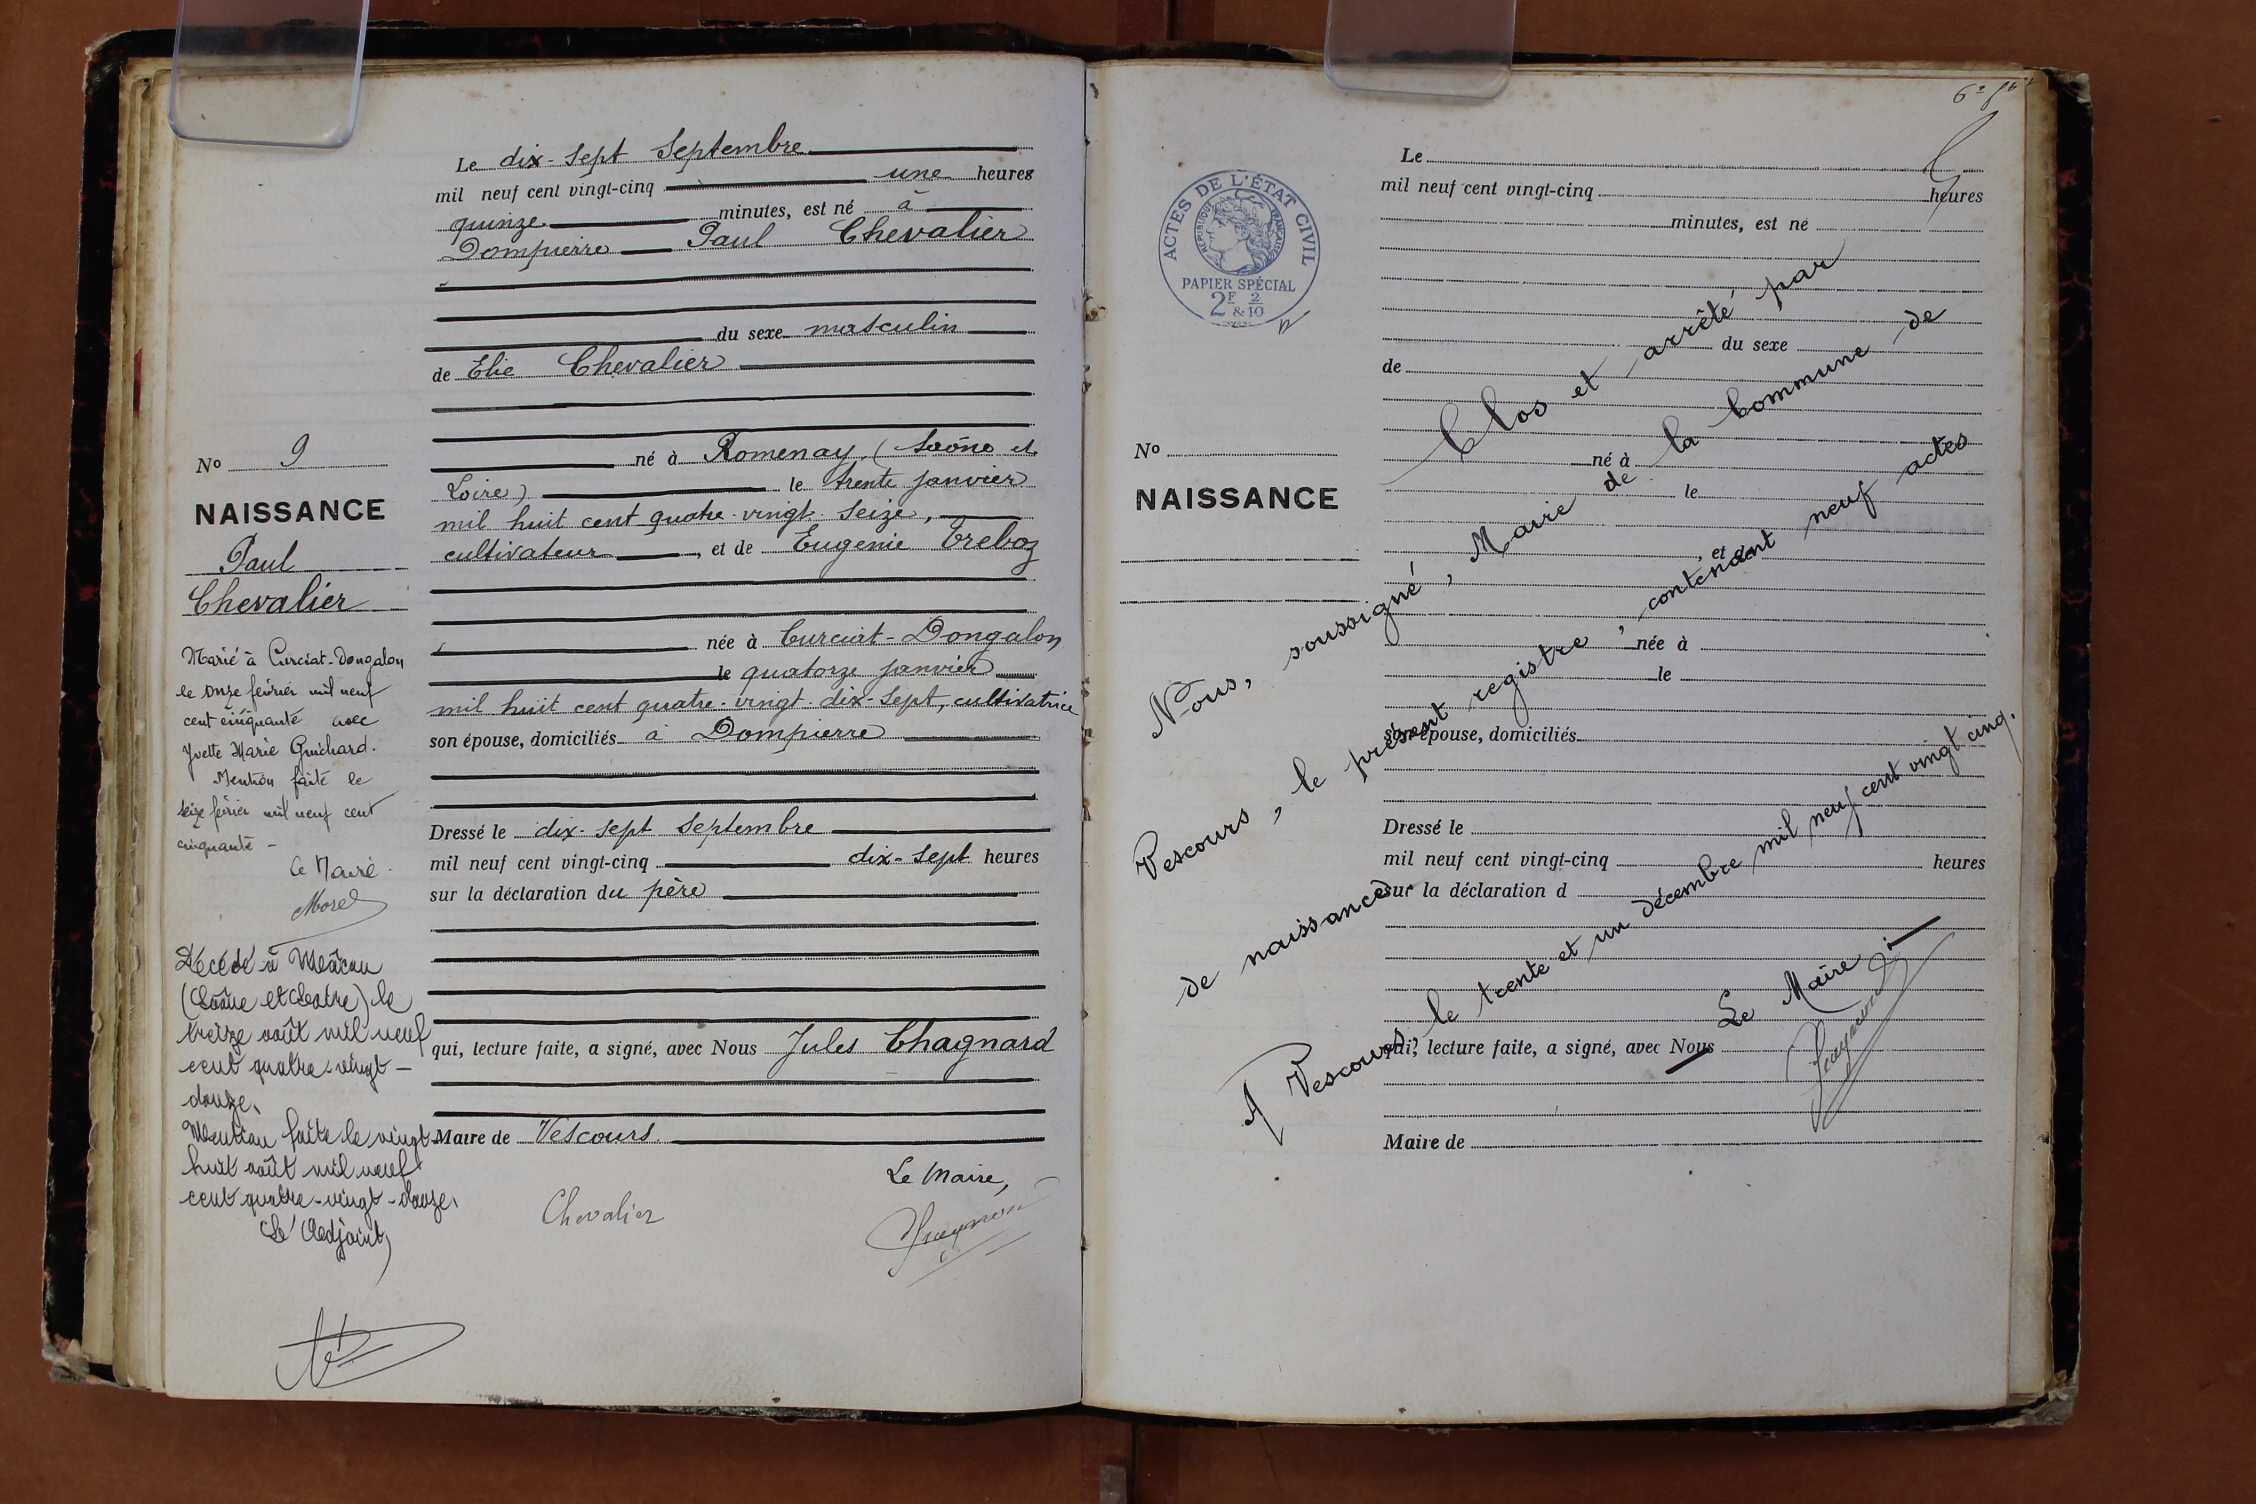 Le dix-sept Septembre
mil neuf cent vingt-cinq une heures
quinze minutes, est né à
Dompierre Paul Chevalier
du sexe masculin
de Elie Chevalier
né à Romenay, (Saône et
Loire) le trente janvier
mil huit cent quatre-vingt seize,
cultivateur, et de Eugenie Treboz
née à Curciat-Dongalon
le quatorze janvier
mil huit cent quatre-vingt-dix-sept, cultivatrice
son épouse, domiciliés à Dompierre
Dressé le dix-sept Septembre
mil neuf cent vingt-cinq dix-sept heures
sur la déclaration du père
qui, lecture faite, a signé, avec Nous Jules Chagnard
Maire de Vescours
Le Maire,
Chevalier
No 9
NAISSANCE
Paul
Chevalier
Marié à Curciat-Dongalon
le onze février mil neuf
cent cinquante avec
Yvette Marie Guichard.
Mention faite le
seize février mil neuf cent
cinquante -
Le Maire.
Morel
Décédé à Mâcon
(Saône et Loire) le
treize août mil neuf
cent quatre-vingt-
douze.
Mention faite le vingt-
huit août mil neuf
cent quatre-vingt-douze.
Le Adjoint,
ACTES DE L'ÉTAT CIVIL
RÉPUBLIQUE FRANÇAISE
PAPIER SPÉCIAL
2F 2
& 10
No
NAISSANCE
Le
mil neuf cent vingt-cinq heures
minutes, est né
du sexe
de
né à
le
, et de
née à
le
son épouse, domiciliés
Dressé le
mil neuf cent vingt-cinq heures
sur la déclaration d
qui, lecture faite, a signé, avec Nous
Maire de
Clos et arrêté par
Nous, soussigné, Maire de la Commune de
Vescours, le présent registre, contenant neuf actes
de naissances
A Vescours, le trente et un décembre mil neuf cent vingt cinq.
Le Maire